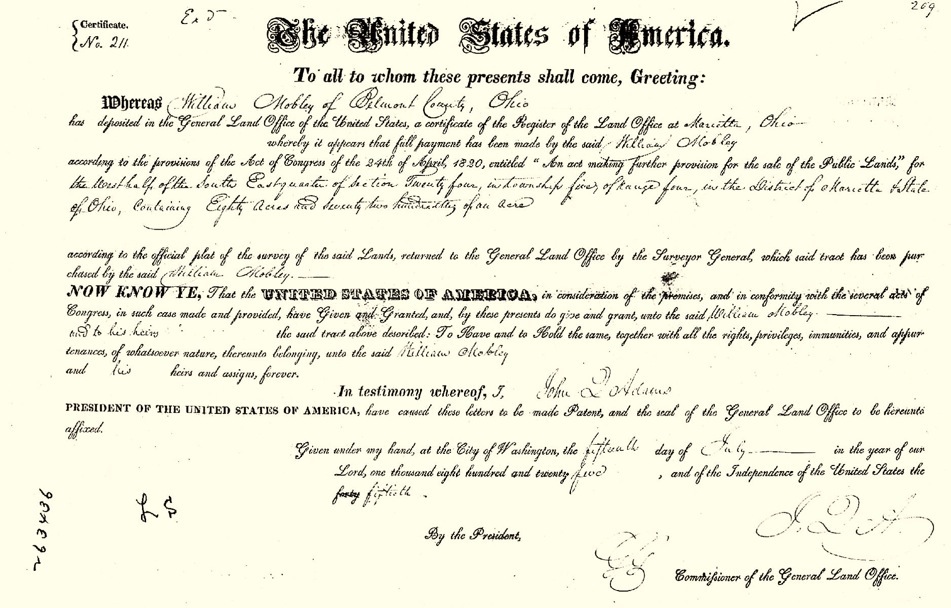 Certificate.
No. 211
Exd
209
The United States of America.
To all to whom these presents shall come, Greeting:
Whereas William Mobley of Belmont County, Ohio
has deposited in the General Land Office of the United States, a certificate of the Register of the Land Office at Marietta, Ohio
whereby it appears that full payment has been made by the said William Mobley
according to the provisions of the Act of Congress of the 24th of April, 1820, entitled “An act making further provision for the sale of the Public Lands,” for
the West half of the South East quarter of section Twenty four, in township five, of Range four, in the District of Marietta & State
of Ohio, Containing Eighty Acres and seventy two hundredths of an acre
according to the official plat of the survey of the said Lands, returned to the General Land Office by the Surveyor General, which said tract has been pur
chased by the said William Mobley.
NOW KNOW YE, That the UNITED STATES OF AMERICA, in consideration of the premises, and in conformity with the several acts of
Congress, in such case made and provided, have Given and Granted, and, by these presents do give and grant, unto the said, William Mobley
and to his heirs the said tract above described: To Have and to Hold the same, together with all the rights, privileges, immunities, and appur
tenances, of whatsoever nature, thereunto belonging, unto the said William Mobley
and his heirs and assigns, forever.
In testimony whereof, I, John Q Adams
PRESIDENT OF THE UNITED STATES OF AMERICA, have caused these letters to be made Patent, and the seal of the General Land Office to be hereunto
affixed.
Given under my hand, at the City of Washington, the fifteenth day of July in the year of our
Lord, one thousand eight hundred and twenty five, and of the Independence of the United States the
forty fiftieth.
LS
By the President, J. Q. A.
Commissioner of the General Land Office.